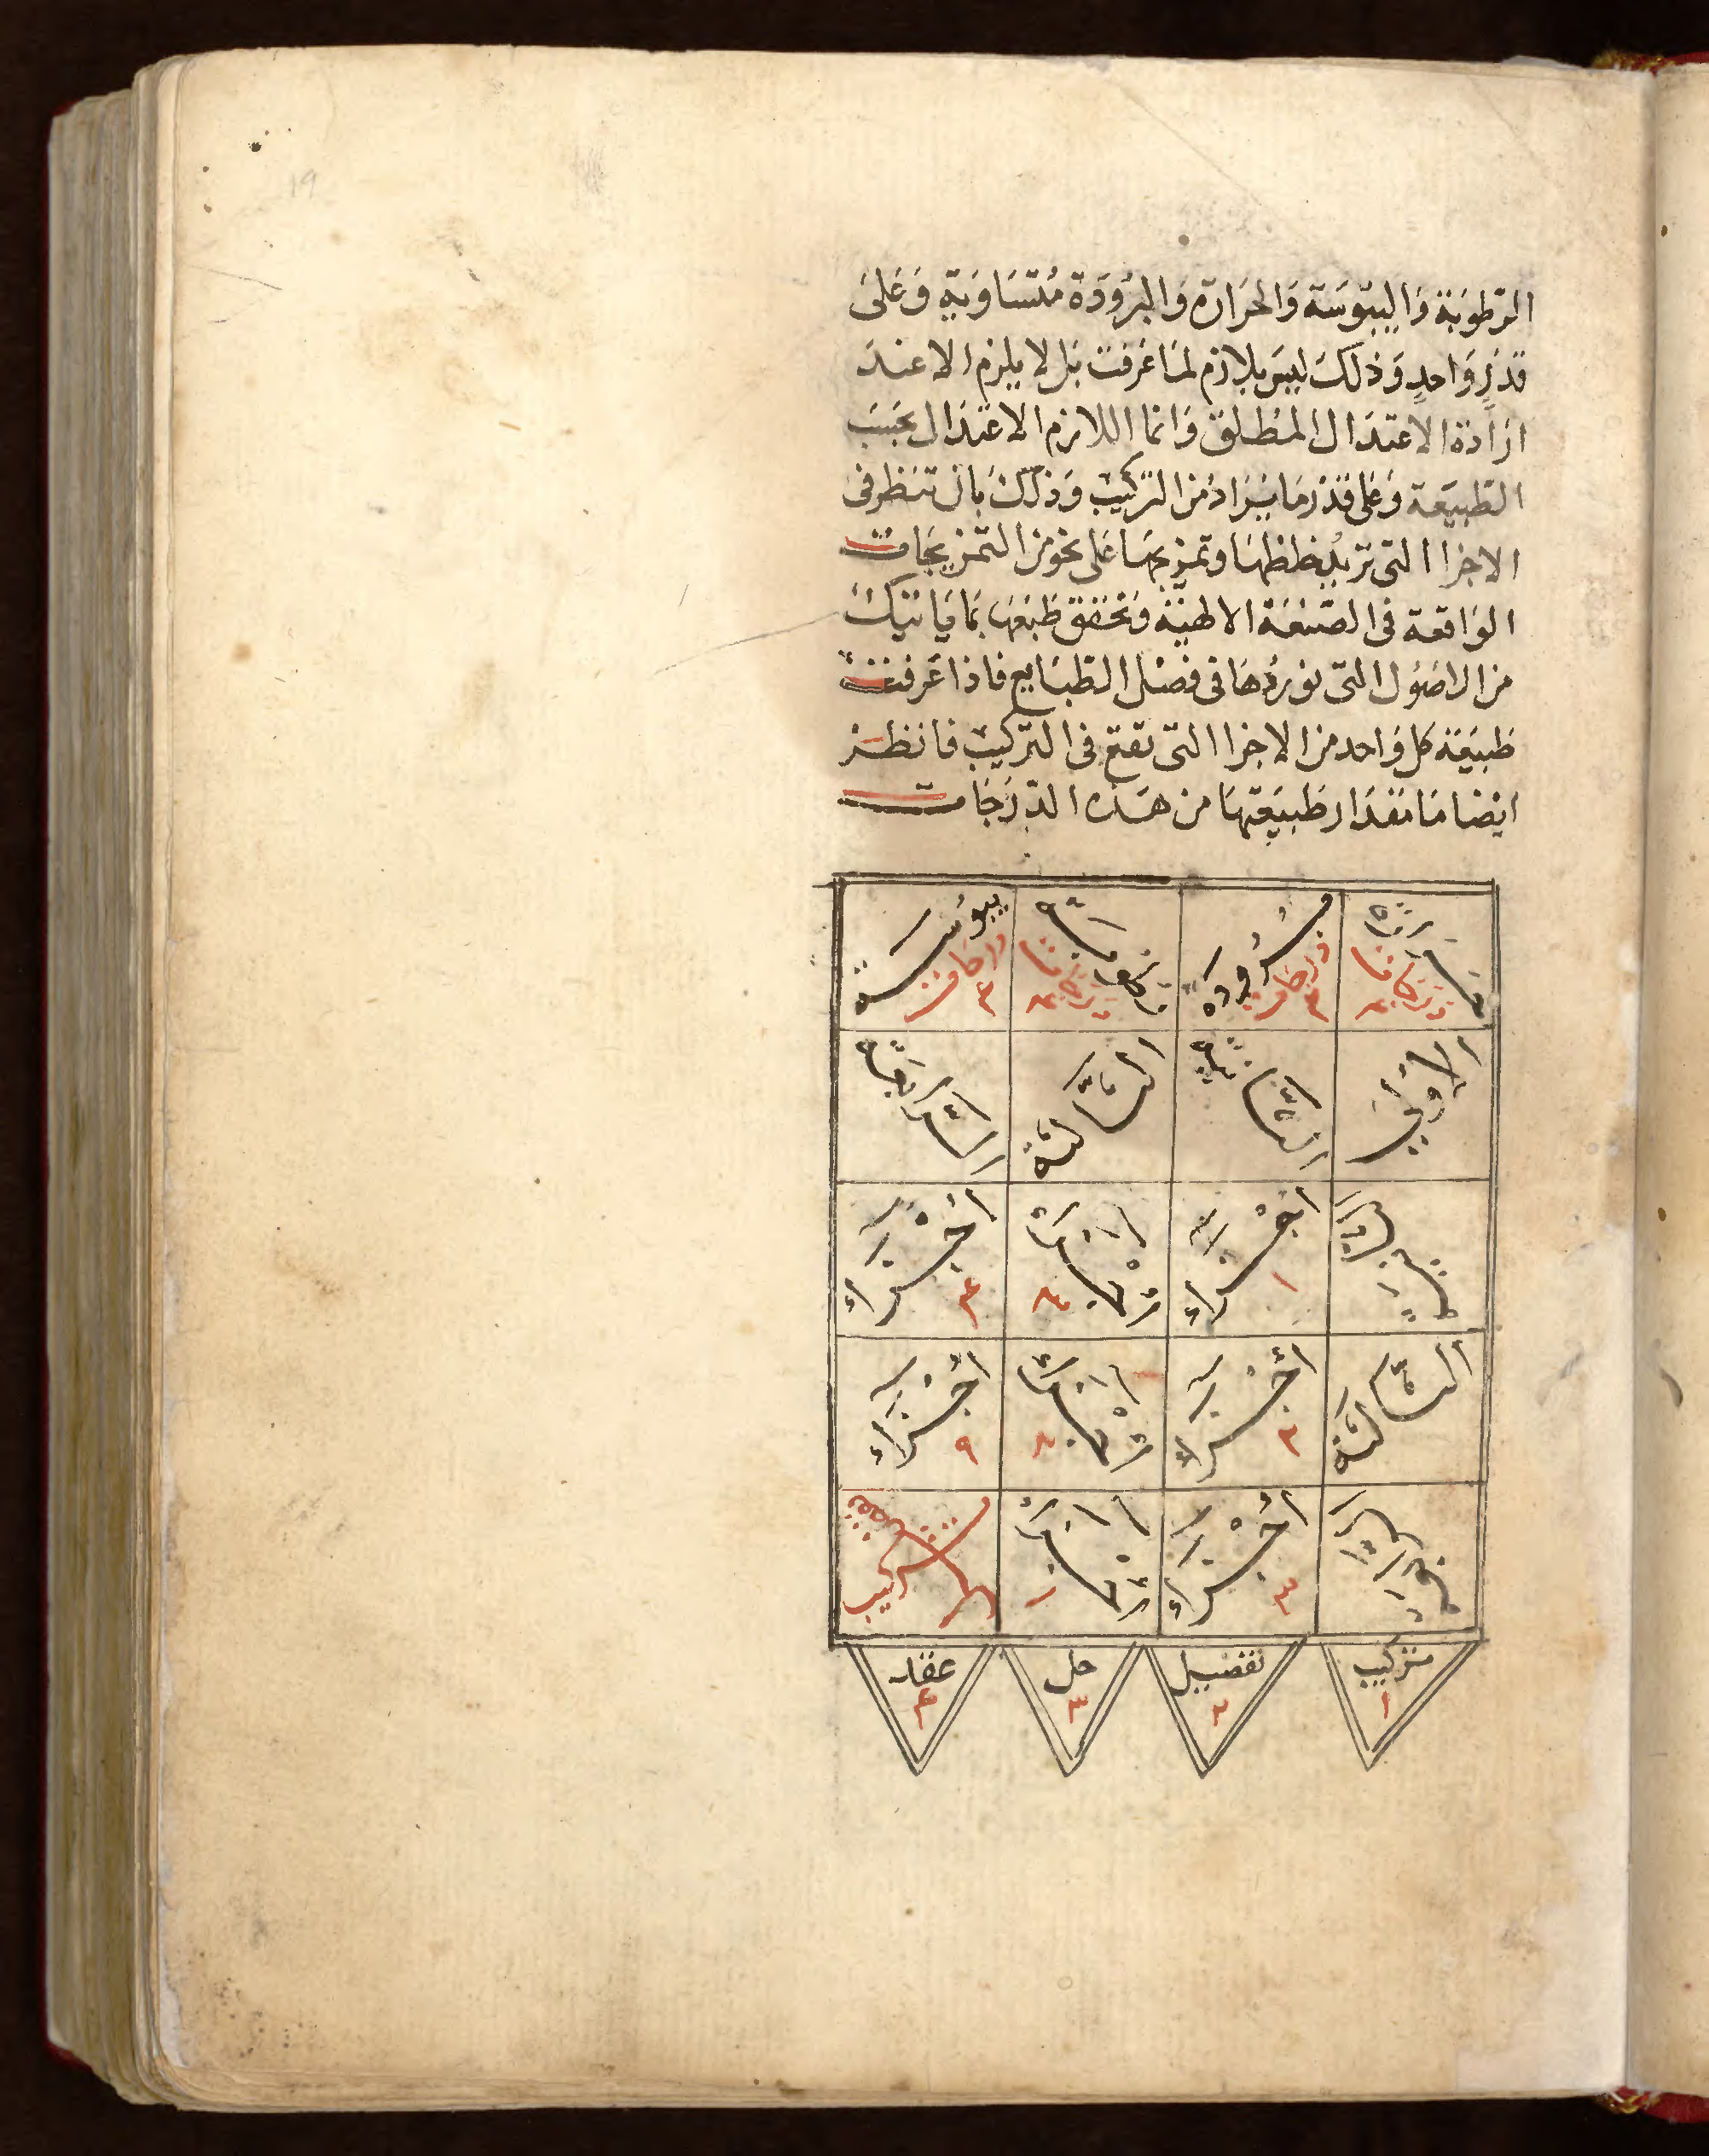 الرطوبة واليبوسة والحرارة والبرودة متساوية وعلى
قدر واحد وذلك ليس بلازم لما عرفت بل لا يلزم الا عند
ارادة الاعتدال المطلق وانما اللازم الاعتدال بحسب
الطبيعة وعلى قدر ما يراد من التركيب وذلك بان تنظر فى
الاجزا التى تريد خلطها وتمزجها على نحو من التمزيجات
الواقعة فى الصنعة الالهية وتحقق طبعها بما ياتيك
من الاصول التى نوردها فى فصل الطبايع فاذا عرفت
طبيعة كل واحد من الاجزا التى تقع فى التركيب فانظر
ايضا ما مقدار طبيعتها من هذه الدرجات
حرارة درجات برودة درجات ٣ رطوبة درجات يبوسة درجات ٣
الاولى الثانية الثالثة الرابعة
اجزاء ١ اجزاء
الثالثة اجزاء اجزاء ٩
اجزاء ٣ ١ تركيب
تركيب تفصيل حل عقد
١ ٢ ٣ ۴
19